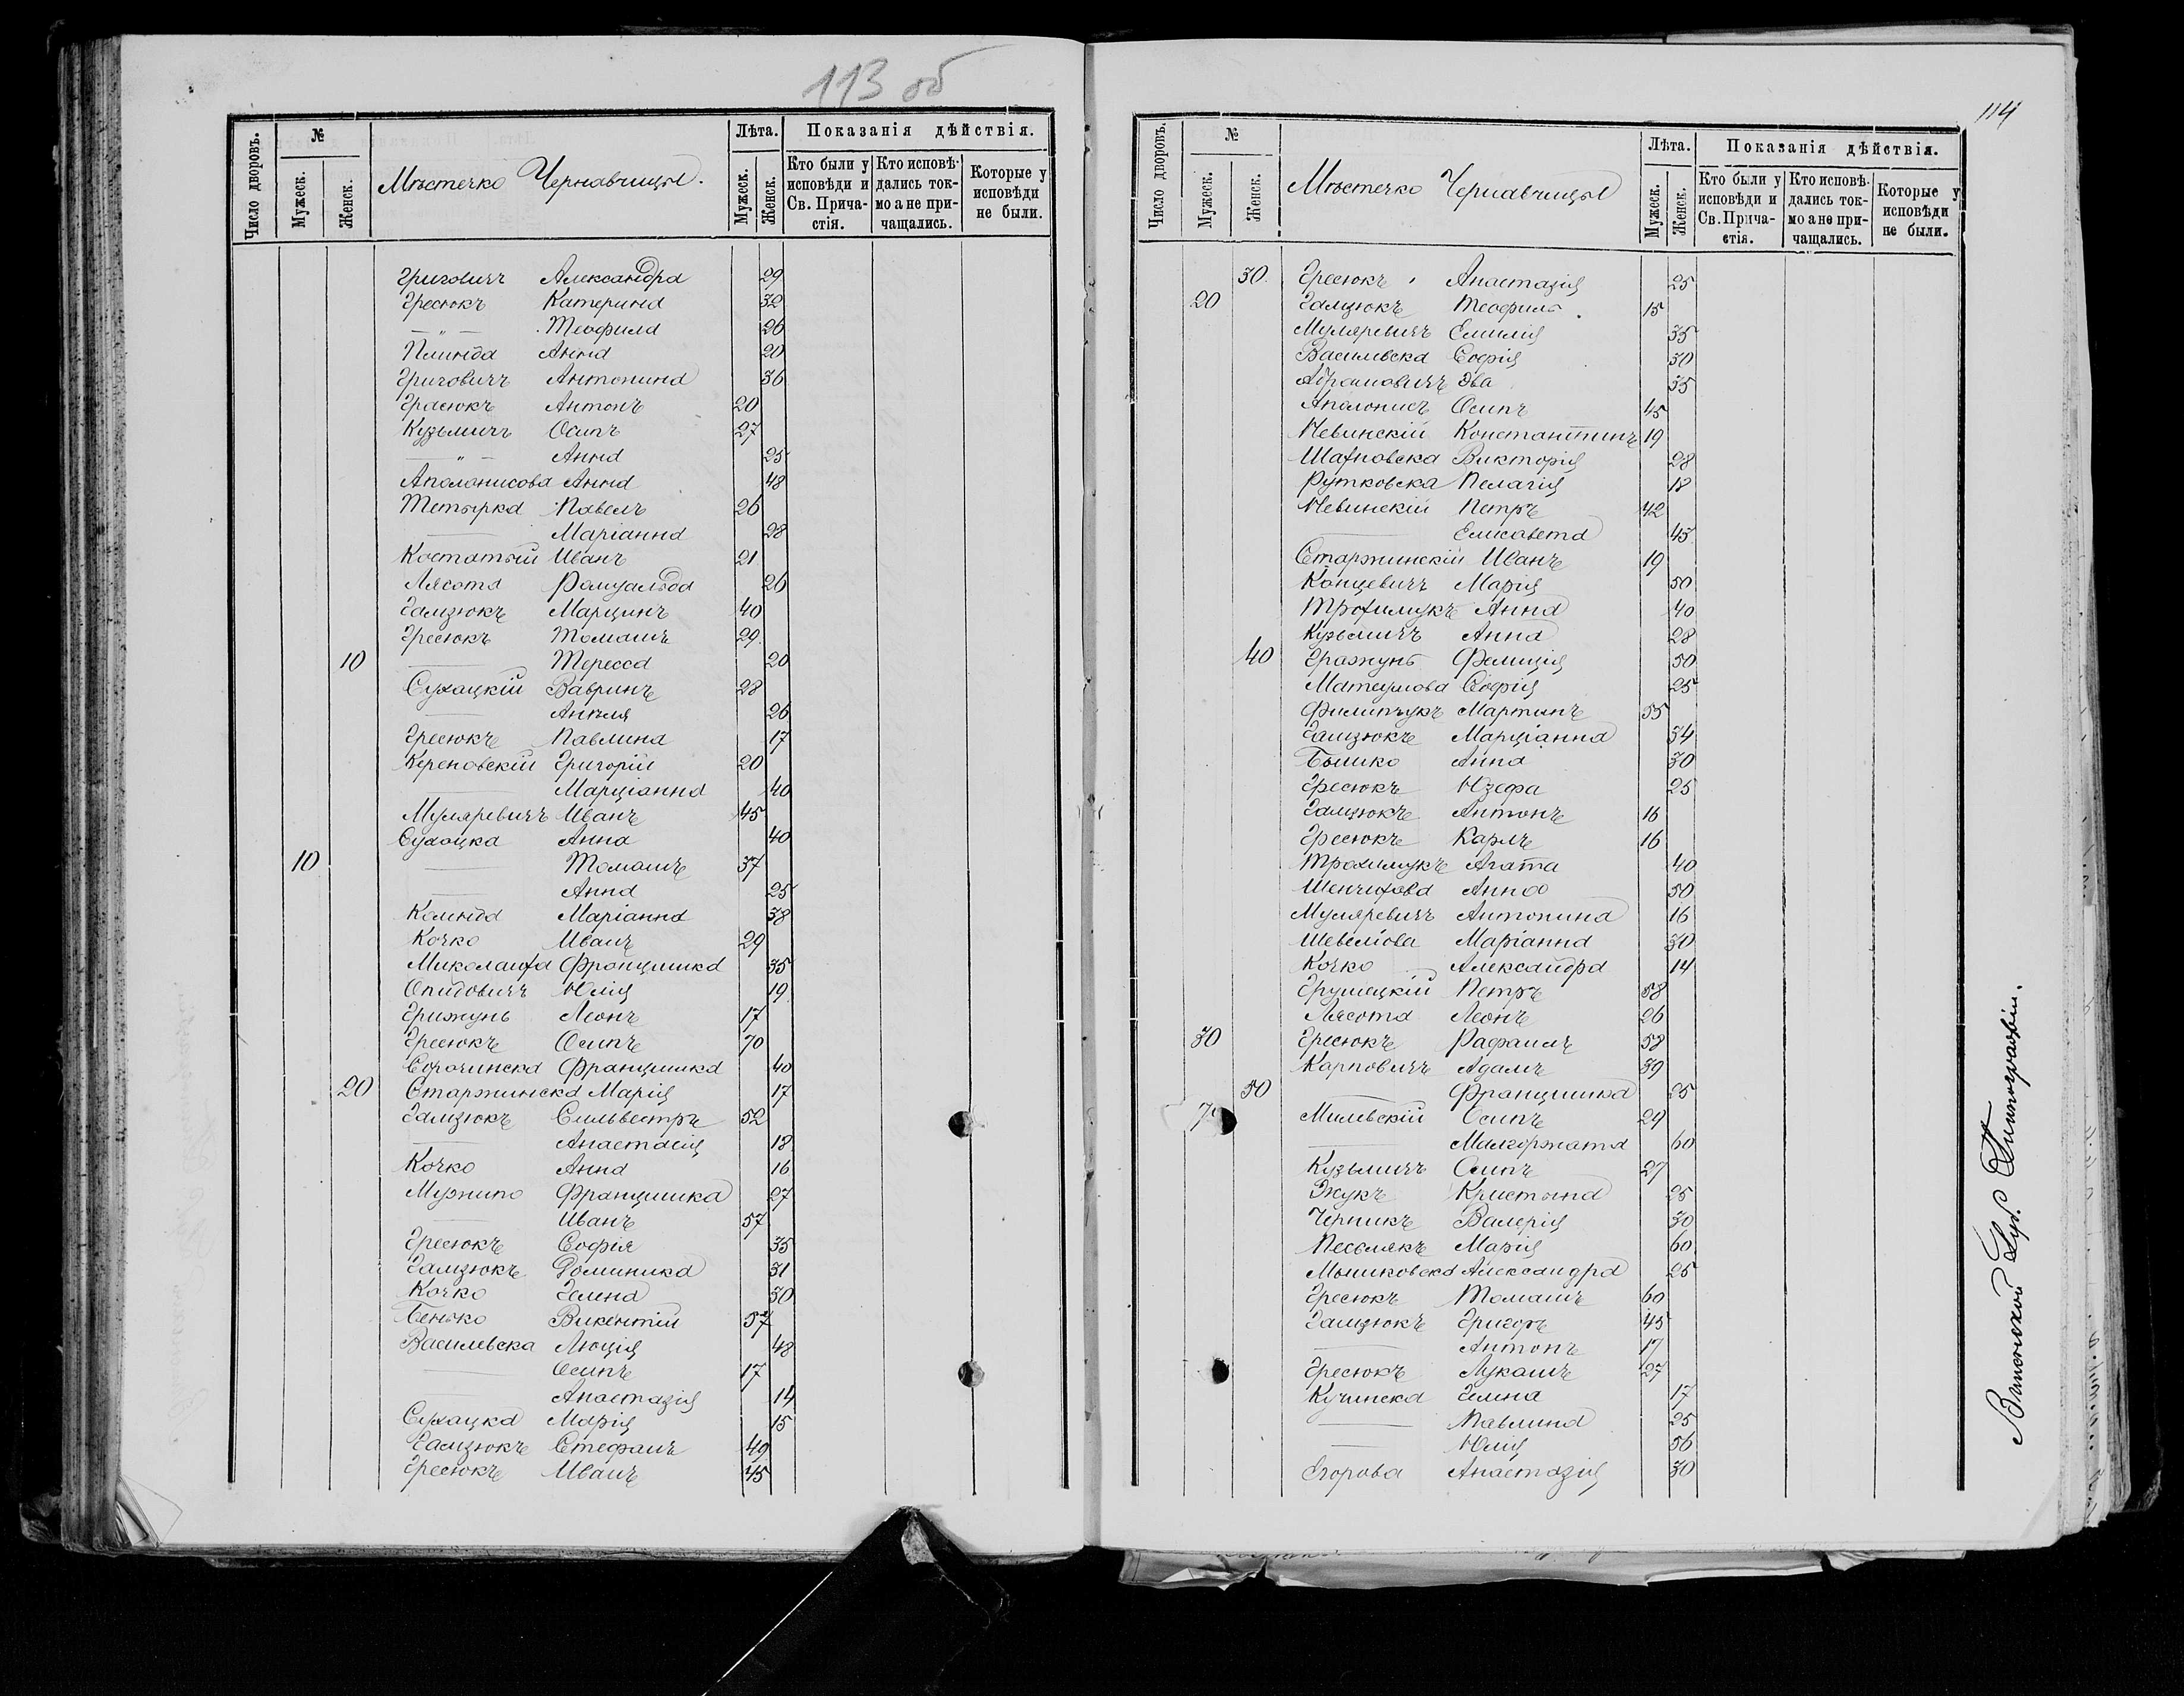 113 об
Число дворовъ.
№
Мужеск.
Женск.
Мѣстечко Чернавчицы.
Лѣта.
Мужеск.
Женск.
Показанія дѣйствія.
Кто были у исповѣди и Св. Прича-стія.
Кто исповѣ-дались ток-мо а не при-чащались.
Которые у исповѣди не были.
Григовичъ Александра 29
Гресюкъ Катерина 32
— „ — Теофила 26
Анна 20
Григовичъ Антонина 36
Грасюкъ Антонъ 20
Кузьмичъ Осипъ 27
— „ — Анна 25
Аполонисова Анна 48
Тетырка Павелъ 26
— Маріанна 28
Костатый Иванъ 21
Лясота Ромуальда 26
Гамзюкъ Марцинъ 40
Гресюкъ Томашъ 29
10 — Тересса 20
Сухацкій Вавринъ 28
— Анѣля 26
Гресюкъ Павлина 17
Григорій 20
— Марціанна 40
Муляревичъ Иванъ 45
Сухоцка Анна 40
10 — Томашъ 37
— Анна 25
Маріанна 38
Кочко Иванъ 29
Францишка 35
Юлія 19
Грижунь Леонъ 17
Гресюкъ Осипъ 70
Францишка 40
20 Старжинска Марія 17
Гамзюкъ Сильвестръ 52
— Анастасія 18
Кочко Анна 16
Францишка 27
— Иванъ 57
Гресюкъ Софія 35
Гамзюкъ Доминика 31
Кочко Гелена 30
Бенько Викентій 57
Василевска Люція 48
— Осипъ 17
— Анастазія 14
Сухацка Марія 15
Гамзюкъ Стефанъ 49
Гресюкъ Иванъ 45
114
Число дворовъ.
№
Мужеск.
Женск.
Мѣстечко Чернавчицы
Лѣта.
Мужеск.
Женск.
Показанія дѣйствія.
Кто были у исповѣди и Св. Прича-стія.
Кто исповѣ-дались ток-мо а не при-чащались.
Которые у исповѣди не были.
30. Гресюкъ Анастазія 25
20 Гамзюкъ Теофиль 15
Муляревичъ Емилія 35
Василевска Софія 30
Абрамовичъ Эва 35
Аполонисъ Осипъ 45
Невинскій Константинъ 19
Викторія 28
Рутковска Пелагія 18
Невинскій Петръ 42
— Елисавета 45
Старжинскій Иванъ 19
Концевичъ Марія 50
Трофимукъ Анна 40
Кузьмичъ Анна 28
40 Гражунь Фелиція 50
Софія 25
Филипчукъ Мартинъ 55
Гамзюкъ Марціанна 34
Анна 30
Гресюкъ Юзефа 25
Гамзюкъ Антонъ 16
Гресюкъ Карлъ 16
Трохимукъ Агата 40
Анна 50
Муляревичъ Антонина 16
Шевелiова Маріанна 30
Кочко Александра 14
Грушецкій Петръ 58
Лясота Леонъ 26
30 Гресюкъ Рафаилъ 58
Карповичъ Адамъ 39
50 — Францишка 25
Милевскій Осипъ 29
— Малгоржата 60
Кузьмичъ Осипъ 27
Жукъ Кристына 25
Черникъ Валерія 30
Песлякъ Марія 60
Александра 25
Гресюкъ Томашъ 60
Гамзюкъ Григоръ 45
— Антонъ 17
Гресюкъ Лукашъ 27
Кучинска Гелина 17
— Павлина 25
— Юлія 56
Егорова Анастазія 30
Виленской Губ. Типографіи.